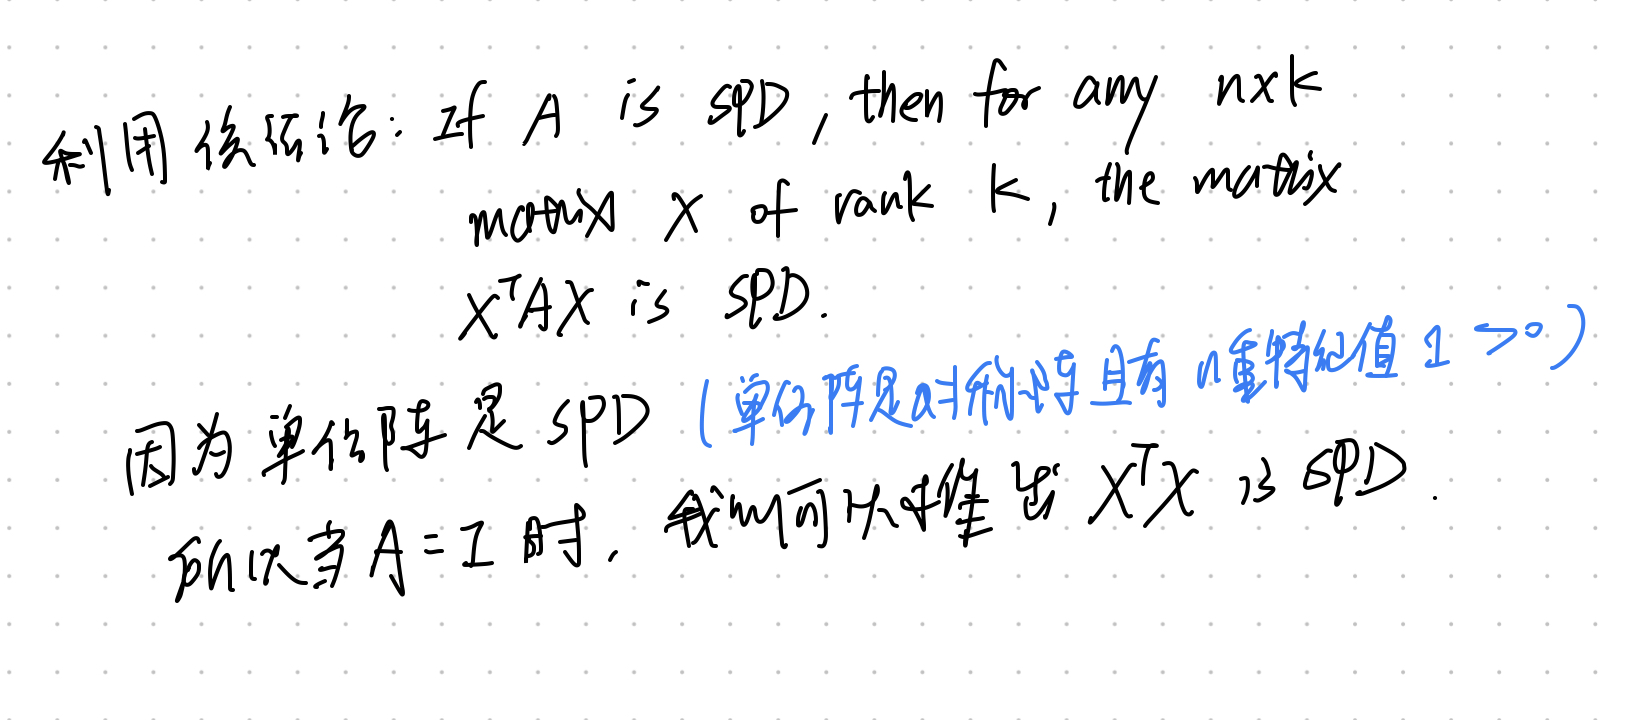 利用该结论: If A is SPD, then for any n×k
matrix X of rank k, the matrix
XᵀAX is SPD.
因为单位阵是 SPD (单位阵是对称阵且有 n重特征值 1 >0)
所以当 A = I 时, 我们可以推出 XᵀX is SPD.